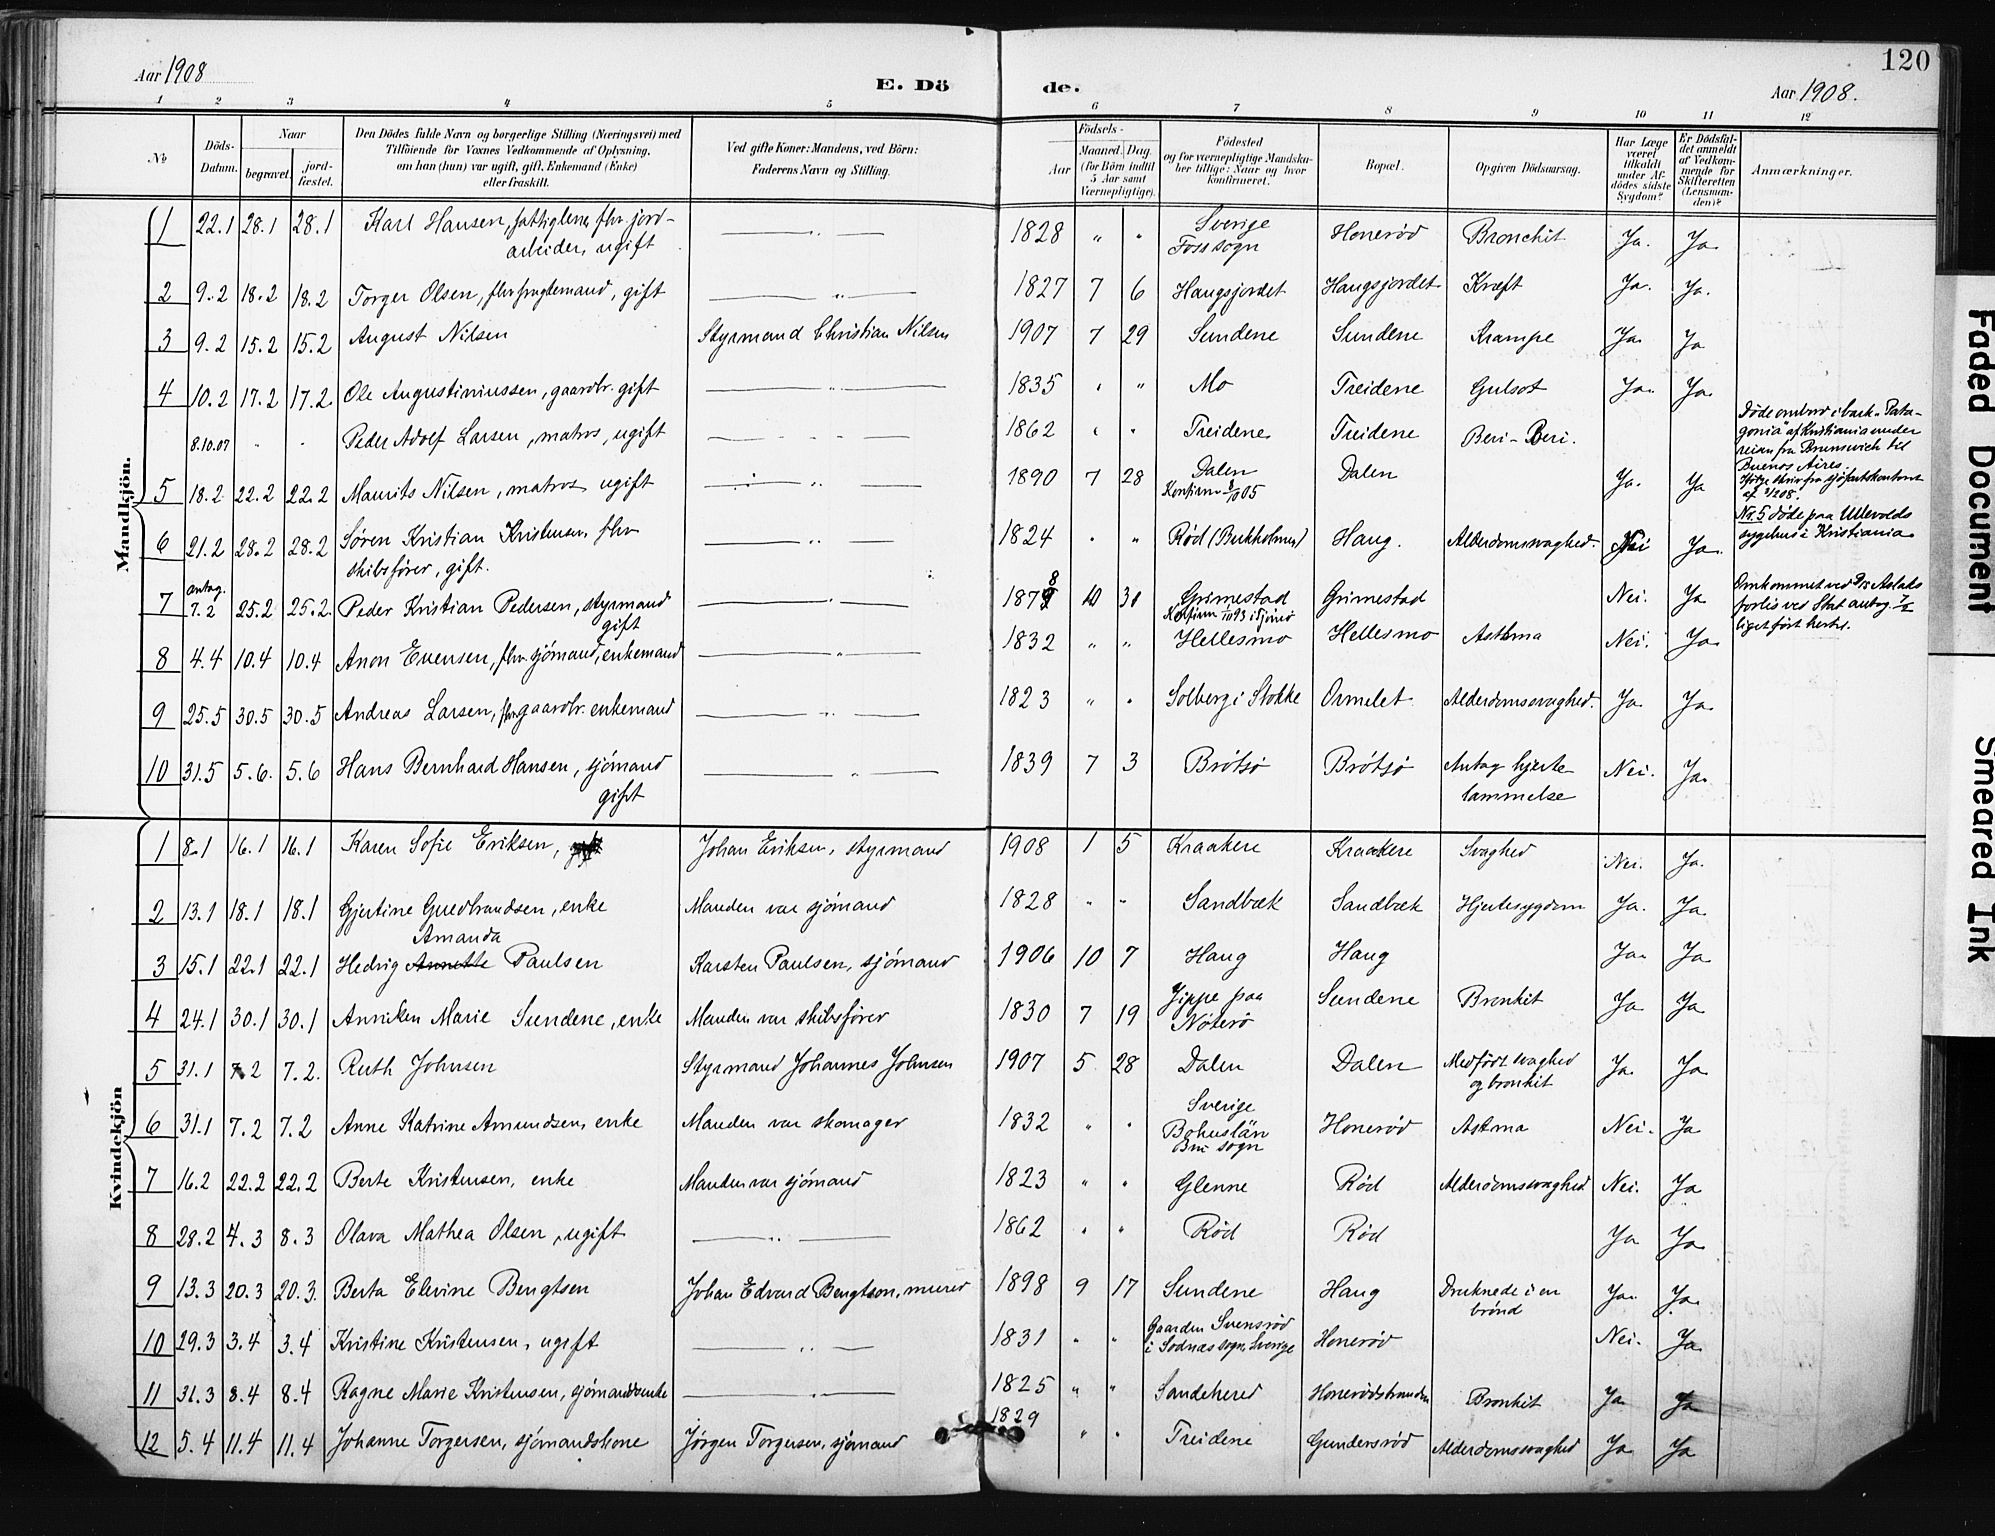 120
Aar 1908
E. Dö de.
Aar 1908.
1 2 3 4 5 6 7 8 9 10 11 12
№
Döds-
Datum.
Naar
begravet.
jord-
fæstet.
Den Dödes fulde Navn og borgerlige Stilling (Næringsvei) med
Tilföiende for Voxnes Vedkommende af Oplysning,
om han (hun) var ugift, gift, Enkemand (Enke)
eller fraskilt.
Ved gifte Koner: Mandens, ved Börn:
Faderens Navn og Stilling.
Födsels-
Aar
Maaned. Dag.
(for Börn indtil
5 Aar samt
Værnepligtige).
Födested
og for værnepligtige Mandska-
ber tillige: Naar og hvor
konfirmeret.
Bopæl.
Opgiven Dödsaarsag.
Har Læge
været
tilkaldt
under Af-
dödes sidste
Sygdom?
Er Dödsfal-
det anmeldt
af Vedkom-
mende for
Skifteretten
(Lensman-
den)?
Anmærkninger.
Mandkjön.
1 22.1 28.1 28.1 Karl Hansen, fattiglem, fhv. jord-
arbeider, ugift 1828 " " Sverige
Foss sogn Honerød Bronchit Ja. Ja.
2 9.2 18.2 18.2 Torger Olsen, fhv. fragtemand, gift 1827 7 6 Haugsjordet Haugsjordet Kræft Ja. Ja.
3 9.2 15.2 15.2 August Nilsen Styrmand Christian Nilsen 1907 7 29 Sundene Sundene Krampe Ja. Ja
4 10.2 17.2 17.2 Ole Augustiniussen, gaardbr. gift 1835 " " Mo Treidene Gulsot Ja. Ja.
8.10.07 " " Peder Adolf Larsen, matros, ugift 1862 " " Treidene Treidene Beri-Beri.
Døde ombord i bark "Pata-
gonia" af Kristiania under
reisen fra Brunswich til
Buenos Aires.
5 18.2 22.2 22.2 Maurits Nilsen, matros ugift 1890 7 28 Dalen
Konfirm 8/10 05 Dalen Ja. Ja
No. 5 døde paa Ullevolds
sygehus i Kristiania
6 21.2 28.2 28.2 Søren Kristian Kristensen, fhv
skibsfører, gift. 1824 " " Rød Haug. Alderdomssvaghed. Nei Ja.
7 antag. 7.2 25.2 25.2 Peder Kristian Pedersen, styrmand
gift 1878 10 30 Grimestad Grimestad Nei. Ja
Omkommet ved
forlis ved Stat antag. 7/2
liget ført herte.
8 4.4 10.4 10.4 Anon Evensen, fhv. sjömand, enkemand 1832 " " Hellesmo Hellesmo Asthma Nei. Ja.
9 25.5 30.5 30.5 Andreas Larsen, fhv. gaardbr. enkemand 1823 " " Solberg i Stokke Ormelet Alderdomssvaghed. Ja Ja.
10 31.5 5.6. 5.6 Hans Bernhard Hansen, sjömand
gift 1839 7 3 Brötsö Brötsö Antag hjerte
lammelse Nei. Ja.
Kvindekjön
1 8.1 16.1 16.1 Karen Sofie Eriksen, Johan Eriksen, styrmand 1908 1 5 Kraakere Kraakere Svaghed Nei. Ja.
2 13.1 18.1 18.1 Gjertine Gudbrandsen, enke Manden var sjömand 1828 " " Sandbæk Sandbæk Hjertesygdom Ja. Ja.
Amanda
3 15.1 22.1 22.1 Hedvig Annette Paulsen Karsten Paulsen, sjömand 1906 10 7 Haug Haug Ja. Ja.
4 24.1 30.1 30.1 Anniken Marie Sundene, enke Manden var skibsfører 1830 7 19 Jippe paa
Nöterö Sundene Bronkit Ja Ja
5 31.1 7.2 7.2. Ruth Johnsen Styrmand Johannes Johnsen 1907 5 28 Dalen Dalen Medfödt svaghed
og bronkit Ja. Ja.
6 31.1 7.2 7.2 Anne Katrine Amundsen, enke Manden var skomager 1832 " " Sverige
Bohuslän
Bru sogn Honerød Astma Nei. Ja
7 16.2 22.2 22.2 Berte Kristensen, enke Manden var sjömand 1823 " " Glenne Rød Alderdomssvaghed Nei. Ja
8 28.2 4.3 8.3 Olava Mathea Olsen, ugift 1862 " " Rød Rød Ja Ja.
9 13.3 20.3 20.3. Berta Elevine Bengtsen Johan Edvard Bengtson, murer 1898 9 17 Sundene Haug Druknede i en
brönd Ja. Ja.
10 29.3 3.4 3.4 Kristine Kristensen, ugift 1831 " " Gaarden Svensrød
i Sodnas sogn, Sverige Honerød Nei. Ja
11 31.3 8.4 8.4 Ragne Marie Kristensen, sjömandsenke 1825 " " Sandehered Honerødstranden Bronkit Ja Ja
12 5.4 11.4 11.4 Johanne Torgersen, sjömandskone Jörgen Torgersen, sjömand 1829 " " Treidene Gundersrød Alderdomssvaghed Ja Ja
Faded Document
Smeared Ink